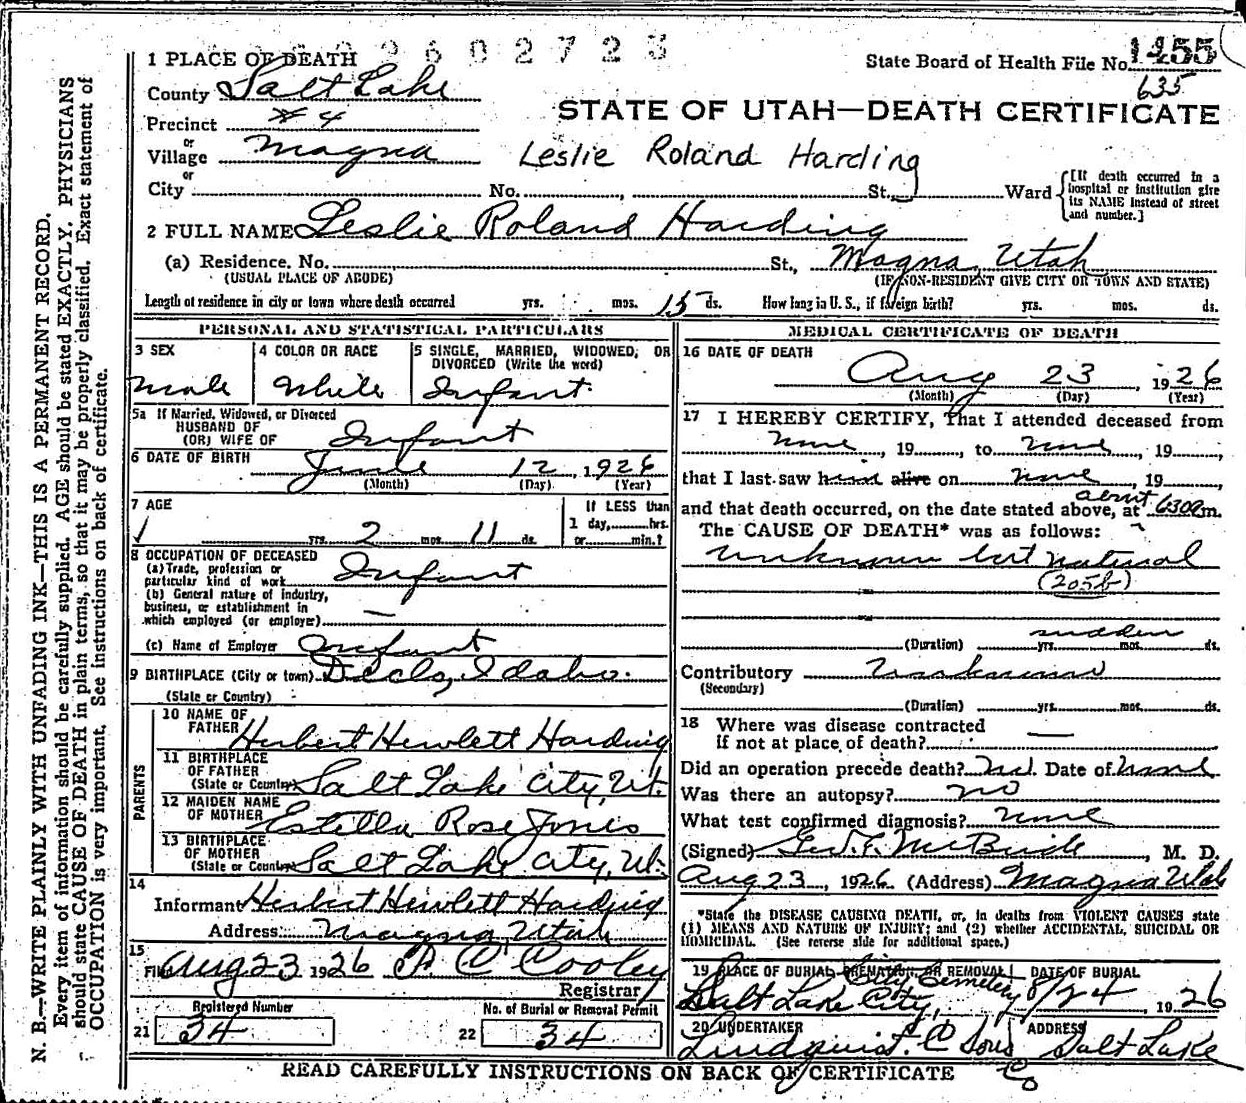 2602725
1 PLACE OF DEATH
State Board of Health File No. 1455
635
County Salt Lake
STATE OF UTAH—DEATH CERTIFICATE
Precinct #4
or
Village Magna
Leslie Roland Harding
or
City No. , St. Ward
[If death occurred in a hospital or institution give its NAME instead of street and number.]
2 FULL NAME Leslie Roland Harding
(a) Residence. No. St., Magna, Utah
(USUAL PLACE OF ABODE) (IF NON-RESIDENT GIVE CITY OR TOWN AND STATE)
Length of residence in city or town where death occurred yrs. mos. 15 ds. How long in U. S., if foreign birth? yrs. mos. ds.
PERSONAL AND STATISTICAL PARTICULARS
3 SEX
Male
4 COLOR OR RACE
White
5 SINGLE, MARRIED, WIDOWED, OR
DIVORCED (Write the word)
Infant
5a If Married, Widowed, or Divorced
HUSBAND OF
(OR) WIFE OF Infant
6 DATE OF BIRTH
June 12, 1926
(Month) (Day) (Year)
7 AGE
yrs. 2 mos. 11 ds.
If LESS than
1 day, hrs.
or min.?
8 OCCUPATION OF DECEASED
(a) Trade, profession or
particular kind of work Infant
(b) General nature of industry,
business, or establishment in
which employed (or employer) —
(c) Name of Employer Infant
9 BIRTHPLACE (City or town) Declo, Idaho.
(State or Country) -
PARENTS
10 NAME OF
FATHER Herbert Hewlett Harding
11 BIRTHPLACE
OF FATHER
(State or Country) Salt Lake City, Ut.
12 MAIDEN NAME
OF MOTHER Estella Rose Jones
13 BIRTHPLACE
OF MOTHER
(State or Country) Salt Lake City, Ut.
14
Informant Herbert Hewlett Harding
Address: Magna Utah
15
Filed Aug 23 1926 A C Cooley
Registrar
Registered Number
21 34
No. of Burial or Removal Permit
22 34
MEDICAL CERTIFICATE OF DEATH
16 DATE OF DEATH
Aug 23, 1926
(Month) (Day) (Year)
17 I HEREBY CERTIFY, That I attended deceased from
none, 19, to none, 19,
that I last saw h alive on none, 19,
about
and that death occurred, on the date stated above, at 630am.
The CAUSE OF DEATH* was as follows:
unknown but natural
(205b)
sudden
(Duration) yrs. mos. ds.
Contributory Unknown
(Secondary)
(Duration) yrs. mos. ds.
18 Where was disease contracted
if not at place of death? —
Did an operation precede death? no. Date of none
Was there an autopsy? no
What test confirmed diagnosis? none
(Signed) Geo. F. McBride, M. D.
Aug 23, 1926 (Address) Magna Utah
*State the DISEASE CAUSING DEATH, or, in deaths from VIOLENT CAUSES state
(1) MEANS AND NATURE OF INJURY; and (2) whether ACCIDENTAL, SUICIDAL OR
HOMICIDAL. (See reverse side for additional space.)
19 PLACE OF BURIAL, CREMATION, OR REMOVAL DATE OF BURIAL
City Cemetery
Salt Lake City, 8/24 1926
20 UNDERTAKER ADDRESS
Lindquist. C Sons Salt Lake
Co
READ CAREFULLY INSTRUCTIONS ON BACK OF CERTIFICATE
N. B.—WRITE PLAINLY WITH UNFADING INK—THIS IS A PERMANENT RECORD.
Every item of information should be carefully supplied. AGE should be stated EXACTLY. PHYSICIANS
should state CAUSE OF DEATH in plain terms, so that it may be properly classified. Exact statement of
OCCUPATION is very important. See Instructions on back of certificate.